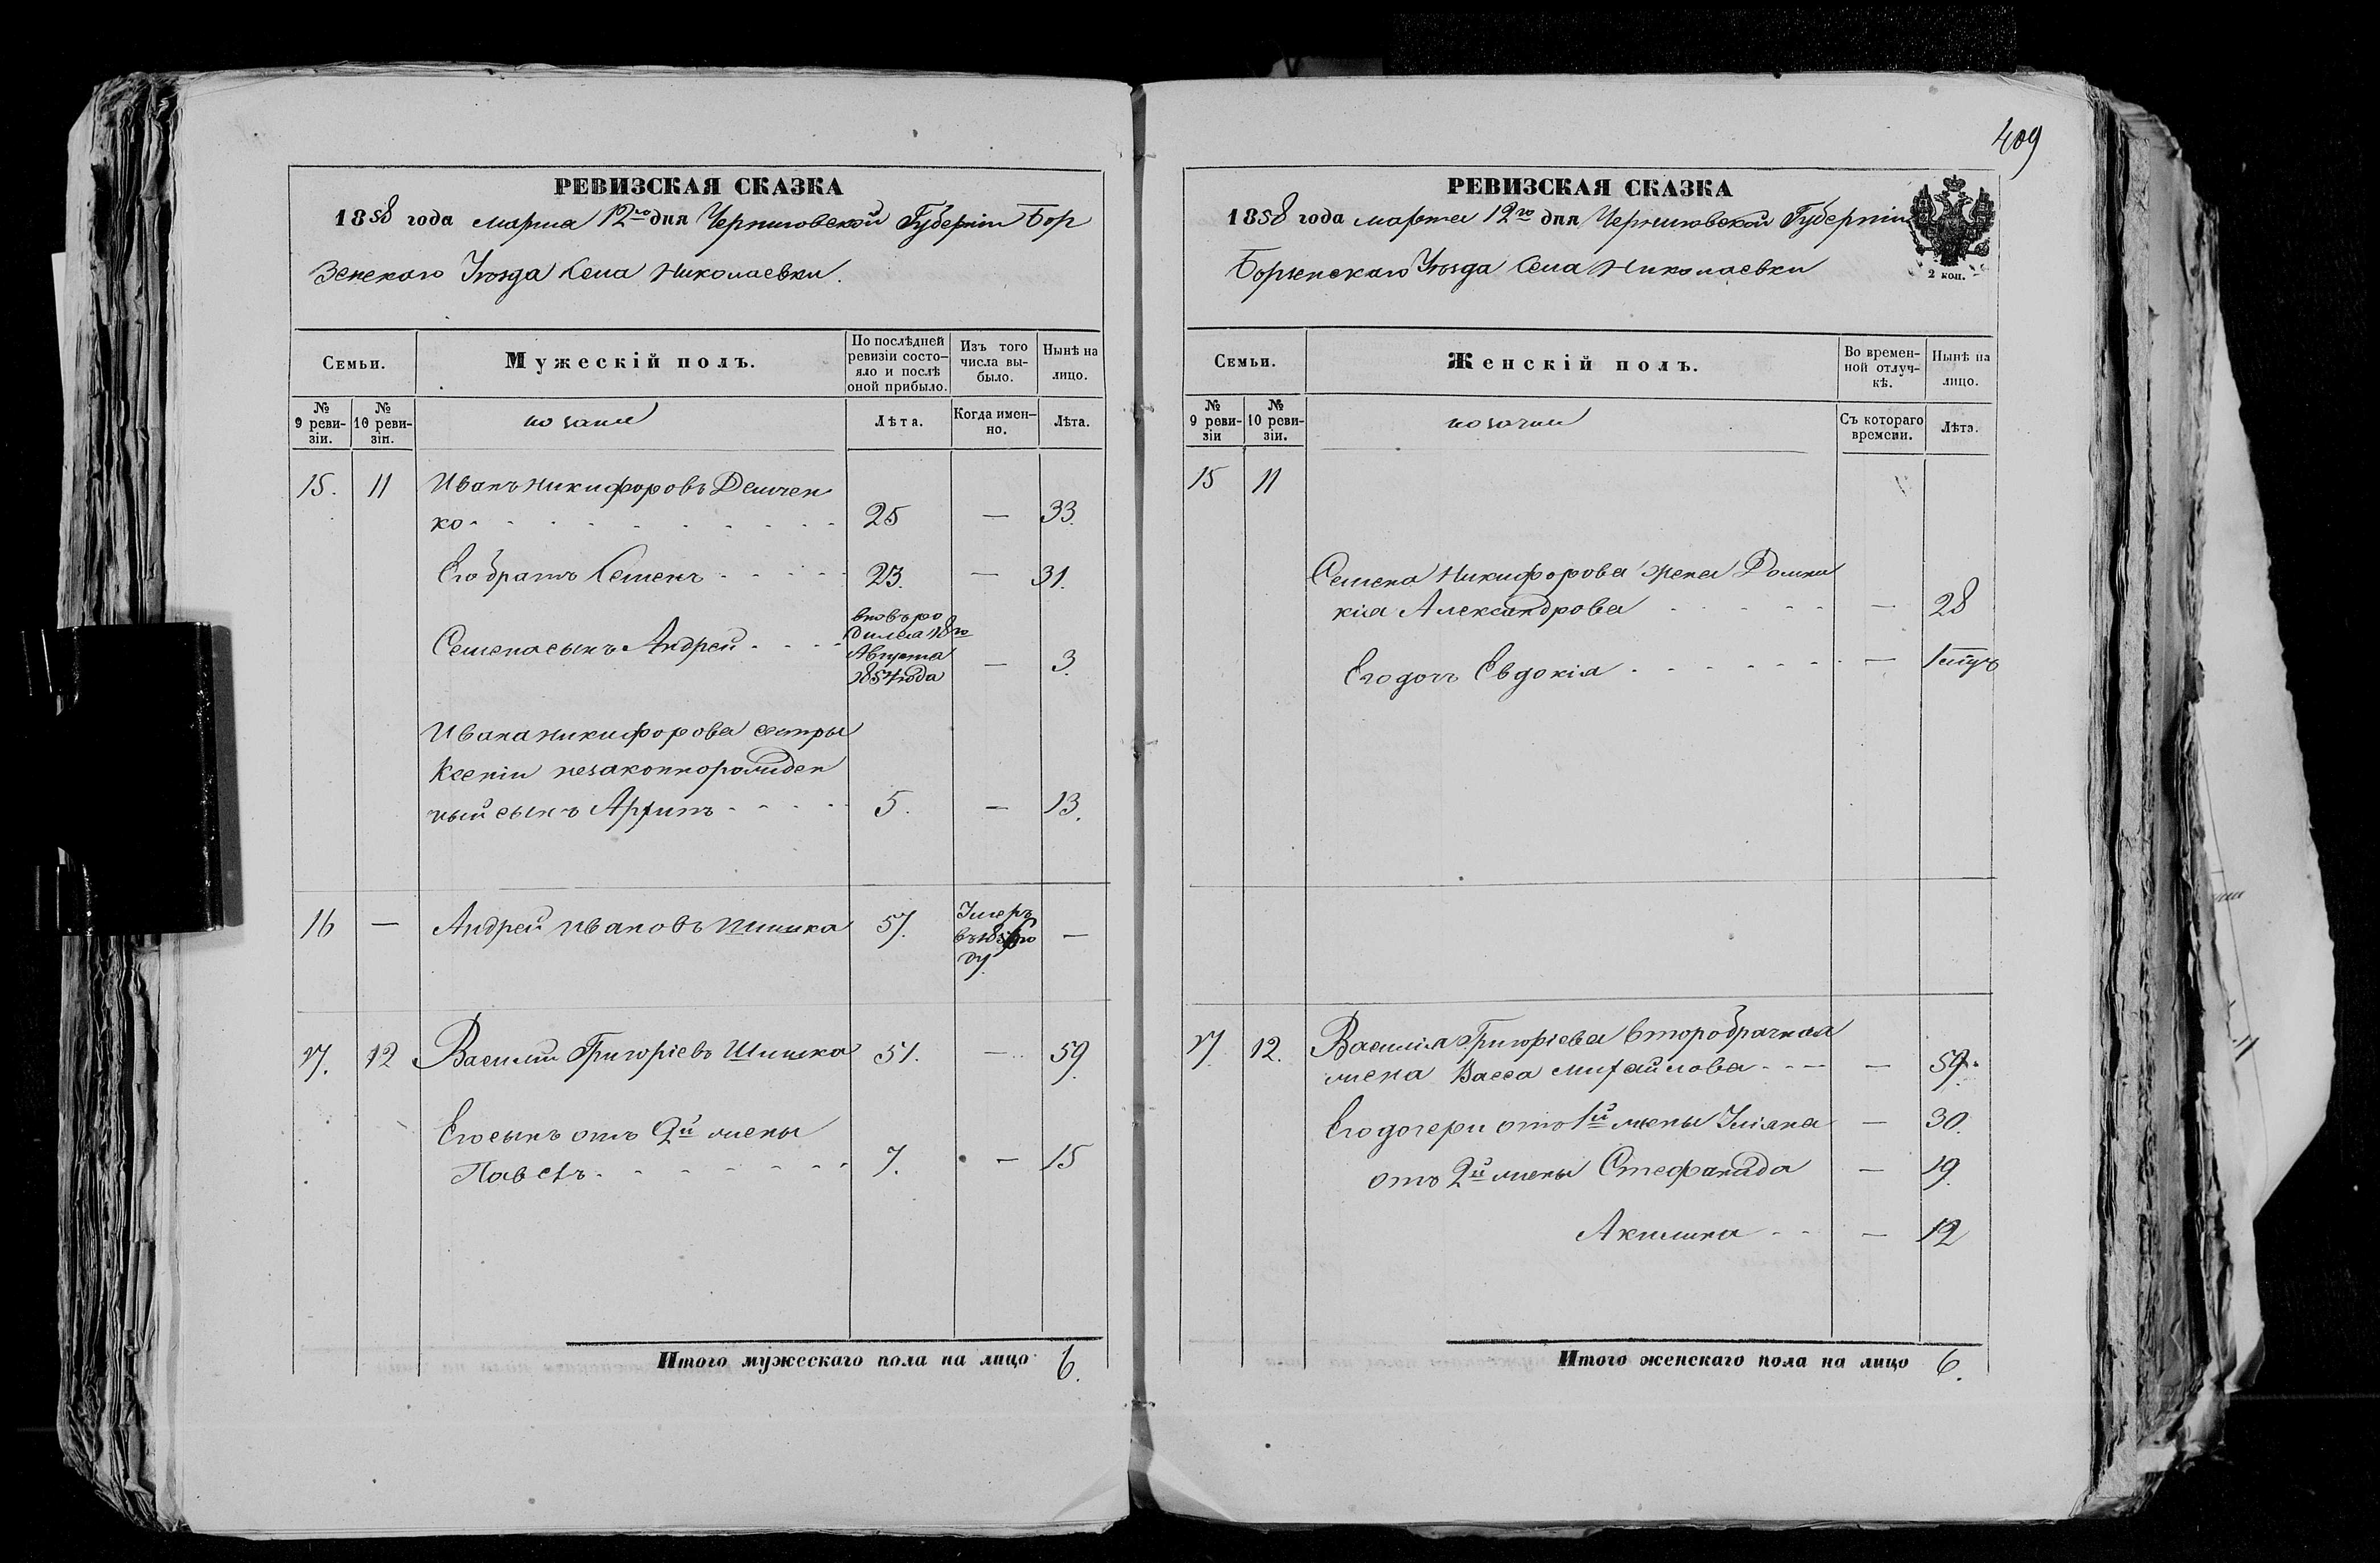 409
РЕВИЗСКАЯ СКАЗКА
1858 года марта 12го дня Черниговской Губерніи Бор
зенскаго Уѣзда Села Николаевки.
Семьи.
Мужескій полъ.
По послѣдней ревизіи состояло и послѣ оной прибыло.
Изъ того числа выбыло.
Нынѣ на лицо.
№ 9 ревизіи.
№ 10 ревизіи.
козаки
Лѣта.
Когда именно.
Лѣта.
15. 11 Иванъ Никифоровъ Демчен
ко 25 — 33.
Его братъ Семенъ 23. — 31.
Семена сынъ Андрей
вновь ро
дился 18го
Августа
1854 года
— 3.
Ивана Никифорова сестры
Ксеніи незаконнорожден
ный сынъ Архипъ 5. — 13.
16 — Андрей Ивановъ Шишка 57.
Умеръ
въ 1856 го
ду
—
17. 12 Василій Григоріевъ Шишка 51. — 59.
Его сынъ отъ 2й жены
Павелъ 7. — 15
Итого мужескаго пола на лицо 6.
РЕВИЗСКАЯ СКАЗКА
1858 года марта 12го дня Черниговской Губерніи
Борзенскаго Уѣзда Села Николаевки
2 коп.
Семьи.
Женскій полъ.
Во временной отлучкѣ.
Нынѣ на лицо.
№ 9 ревизіи
№ 10 ревизіи.
козачки
Съ котораго времени.
Лѣта.
15 11
Семена Никифорова жена Домни
кія Александрова — 28
Его дочь Евдокія —
17. 12. Василія Григоріева второбрачная
жена Васса Михайлова — 59.
Его дочери отъ 1й жены Уліяна — 30.
отъ 2й жены Стефанида — 19.
Акилина — 12
Итого женскаго пола на лицо 6.